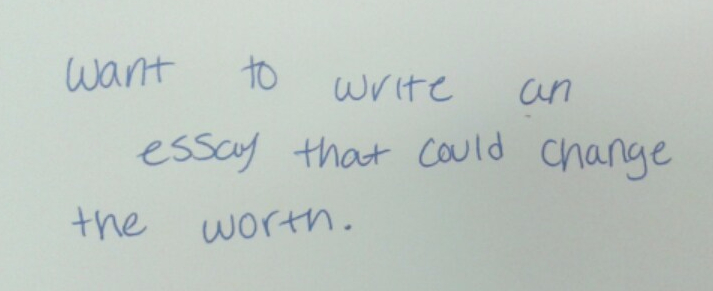 want to write an
essay that could change
the worth.